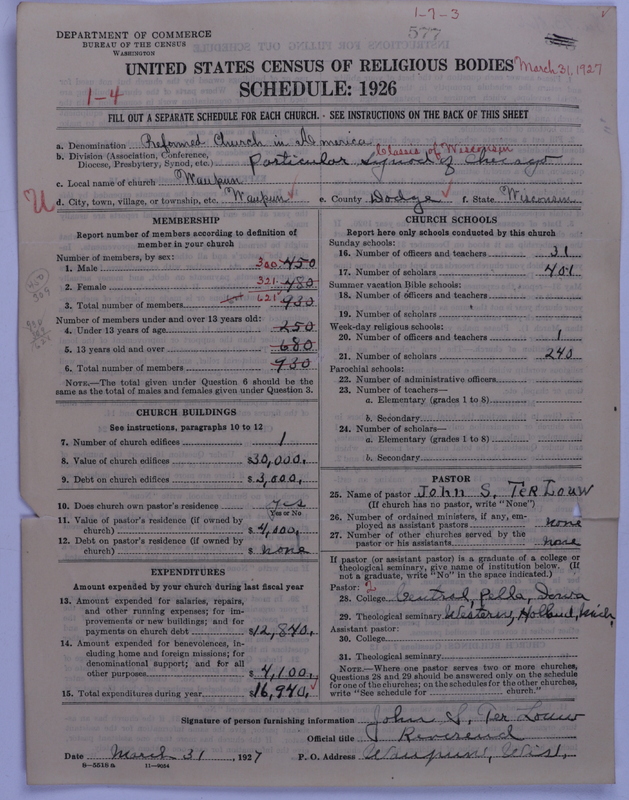 1-7-3
577
DEPARTMENT OF COMMERCE
BUREAU OF THE CENSUS
WASHINGTON
UNITED STATES CENSUS OF RELIGIOUS BODIES March 31, 1927
SCHEDULE: 1926
1-4
FILL OUT A SEPARATE SCHEDULE FOR EACH CHURCH. - SEE INSTRUCTIONS ON THE BACK OF THIS SHEET
a. Denomination Reformed Church in America
Classis of Wisconsin
b. Division (Association, Conference, Diocese, Presbytery, Synod, etc.) Particular Synod of Chicago
c. Local name of church Waupun
U
d. City, town, village, or township, etc. Waupun e. County Dodge f. State Wisconsin
MEMBERSHIP
Report number of members according to definition of
member in your church
Number of members, by sex:
1. Male 300 450
2. Female 321 480
3. Total number of members 621 930
Number of members under and over 13 years old:
4. Under 13 years of age 250
5. 13 years old and over 680
6. Total number of members 930
NOTE.—The total given under Question 6 should be the
same as the total of males and females given under Question 3.
CHURCH BUILDINGS
See instructions, paragraphs 10 to 12
7. Number of church edifices 1
8. Value of church edifices $30,000.
9. Debt on church edifices $3,000.
10. Does church own pastor's residence yes
Yes or No
11. Value of pastor's residence (if owned by
church) $4,000.
12. Debt on pastor's residence (if owned by
church) $ none
EXPENDITURES
Amount expended by your church during last fiscal year
13. Amount expended for salaries, repairs,
and other running expenses; for im-
provements or new buildings; and for
payments on church debt $12,840.
14. Amount expended for benevolences, in-
cluding home and foreign missions; for
denominational support; and for all
other purposes $4,100.
15. Total expenditures during year $16,940.
CHURCH SCHOOLS
Report here only schools conducted by this church
Sunday schools:
16. Number of officers and teachers 31
17. Number of scholars 401
Summer vacation Bible schools:
18. Number of officers and teachers
19. Number of scholars
Week-day religious schools:
20. Number of officers and teachers 1
21. Number of scholars 240
Parochial schools:
22. Number of administrative officers
23. Number of teachers—
a. Elementary (grades 1 to 8)
b. Secondary
24. Number of scholars—
a. Elementary (grades 1 to 8)
b. Secondary
PASTOR
25. Name of pastor John S. Ter Louw
(If church has no pastor, write "None")
26. Number of ordained ministers, if any, em-
ployed as assistant pastors none
27. Number of other churches served by the
pastor or his assistants none
If pastor (or assistant pastor) is a graduate of a college or
theological seminary, give name of institution below. (If
not a graduate, write "No" in the space indicated.)
Pastor: 2
28. College Central, Pella, Iowa
29. Theological seminary Western, Holland, Mich.
Assistant pastor:
30. College
31. Theological seminary
NOTE.—Where one pastor serves two or more churches,
Questions 28 and 29 should be answered only on the schedule
for one of the churches; on the schedules for the other churches,
write "See schedule for church."
Signature of person furnishing information John S. Ter Louw
Official title Reverend
Date March 31, 1927 P. O. Address Waupun, Wis.
8-5518a 11-9064